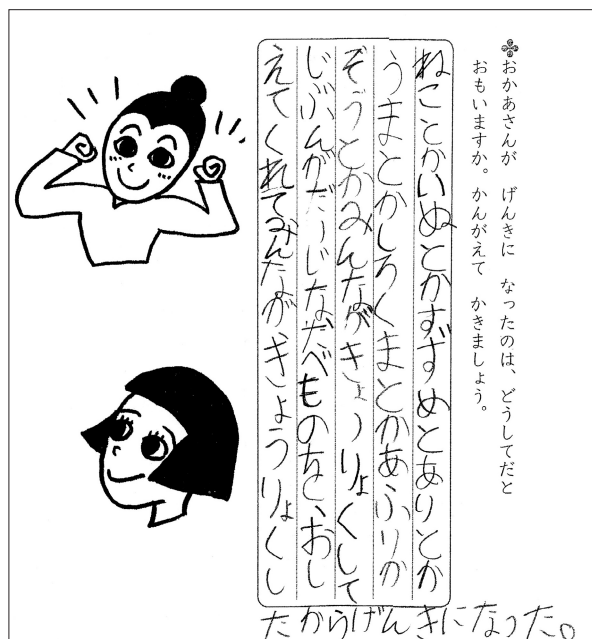 おかあさんが げんきに なったのは、どうしてだと
おもいますか。かんがえて かきましょう。
ねことかいぬとかすずめとありとか
うまとかしろくまとかあふりか
ぞうとかみんながきょうりょくして
じぶんがだいじなたべものを、おし
えてくれてみんながきょうりょくし
たからげんきになった。